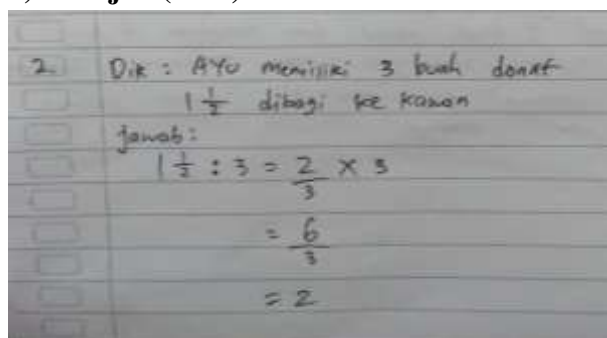 2. Dik : AYU memiliki 3 buah donat
1 1/2 dibagi ke kawan
Jawab :
1 1/2 : 3 = 2/3 × 3
= 6/3
= 2